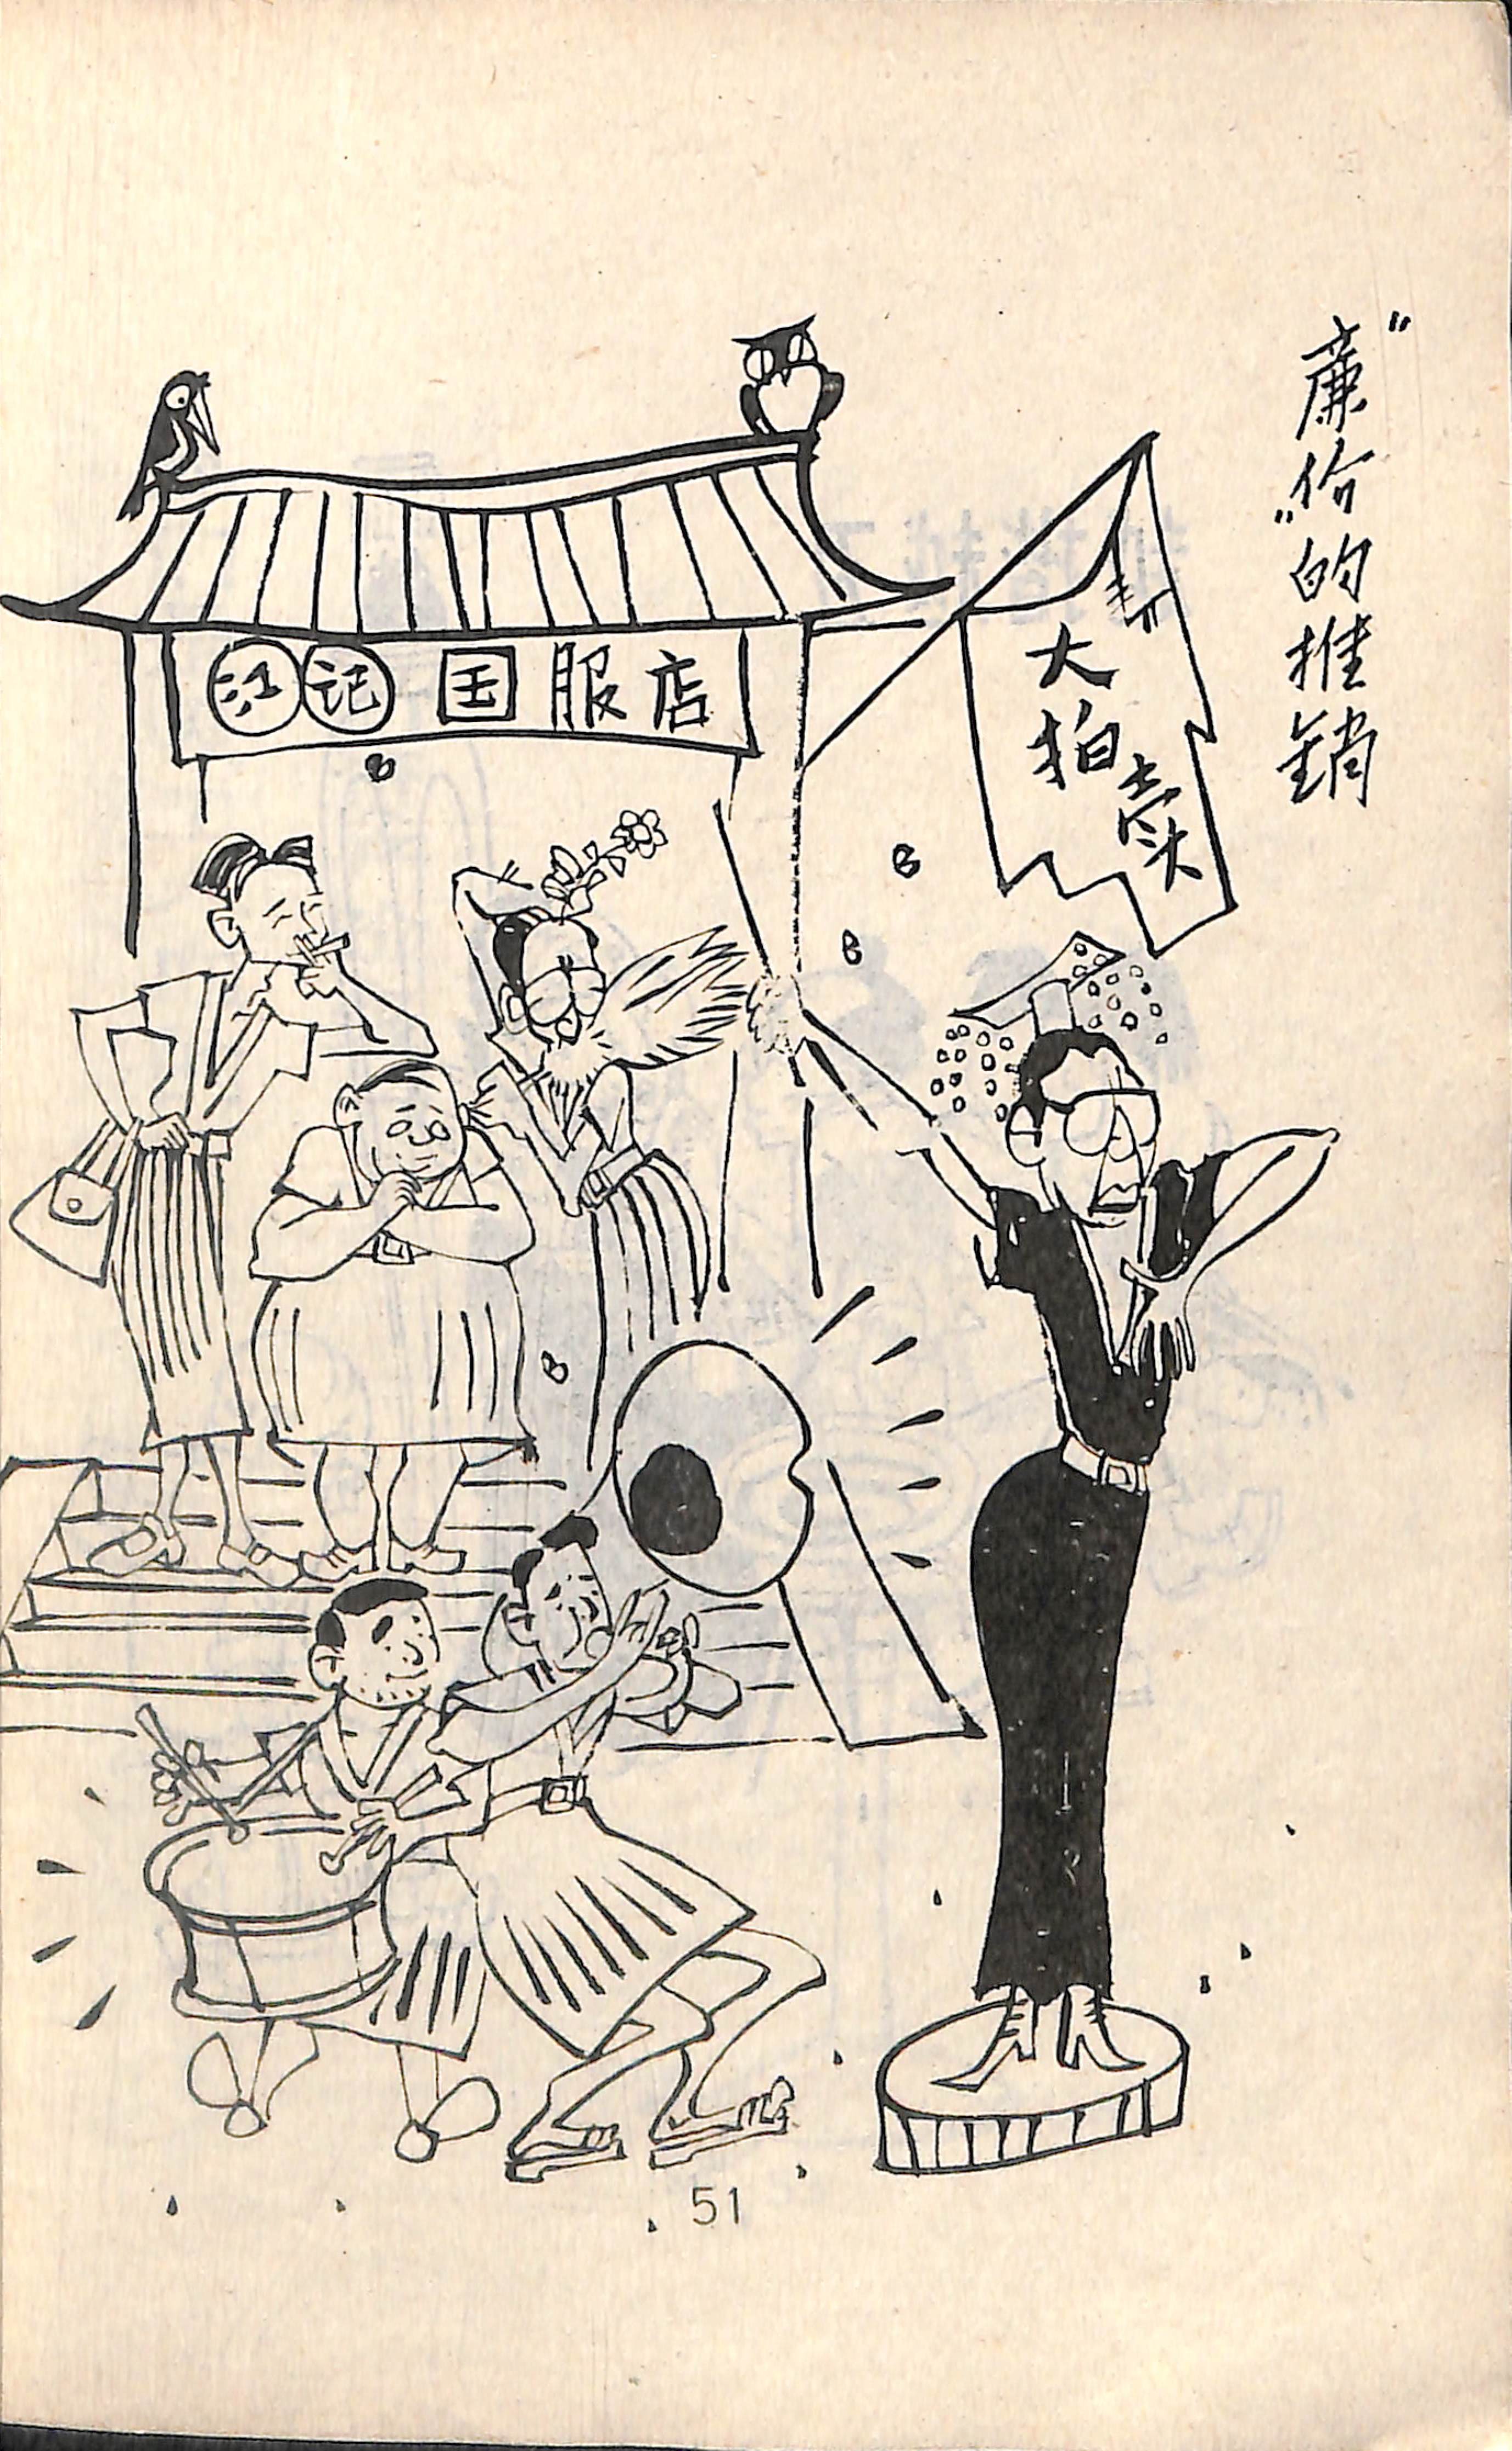 “廉价”的推銷
江记国服店
大拍卖
51